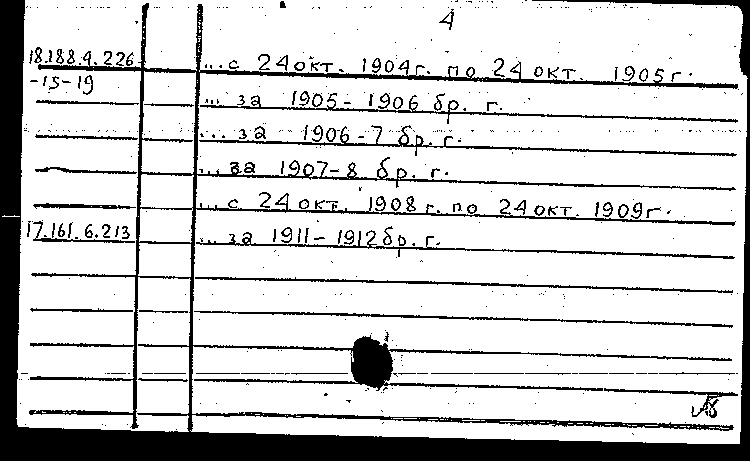 4
18.188.4.226 ... с 24 окт. 1904 г. по 24 окт. 1905 г.
-15-19
... за 1905-1906 бр. г.
... за 1906-7 бр. г.
... за 1907-8 бр. г.
... с 24 окт. 1908 г. по 24 окт. 1909 г.
17.161.6.213 ... за 1911-1912 бр. г.